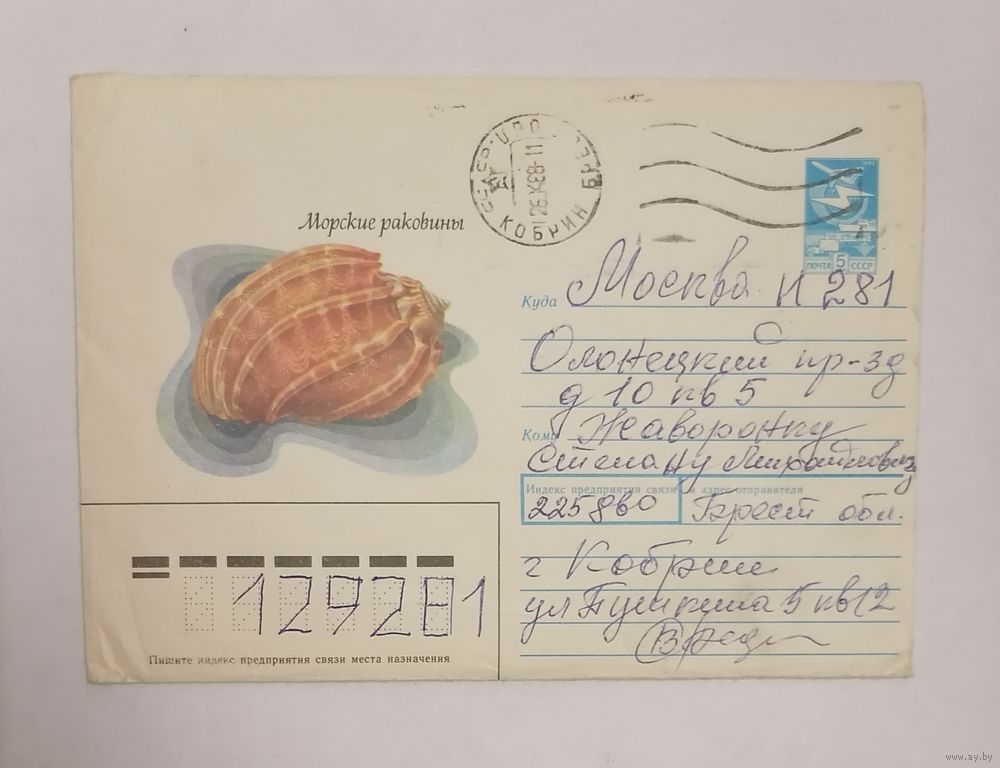 Морские раковины
КОБРИН
ПОЧТА 5 СССР
Куда Москва И 281
Олонецкий пр-зд
д 10 кв 5
Кому Жаворонку
Степану Михайловичу
Индекс предприятия связи и адрес отправителя
225860 Брест обл.
г Кобрин
ул Пушкина 5 кв 12
129281
Пишите индекс предприятия связи места назначения
www.ay.by